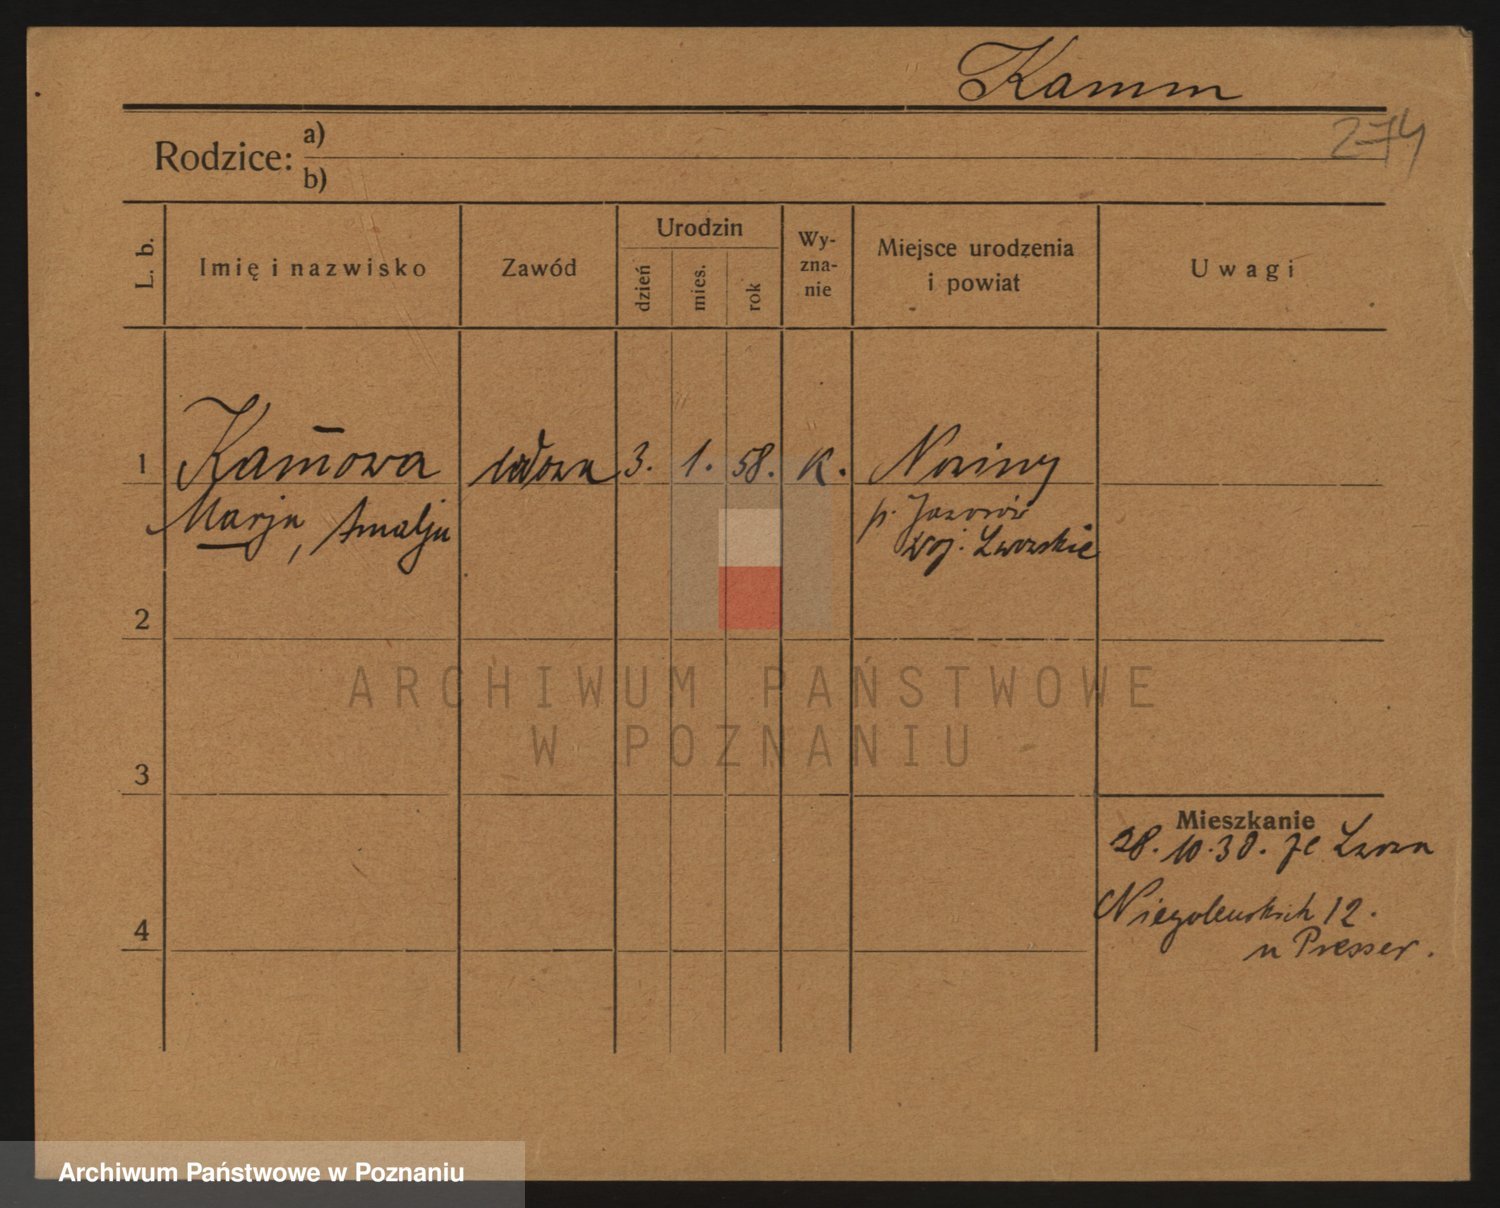 Kamm
274
Rodzice: a)
b)
L. b.
Imię i nazwisko
Zawód
Urodzin
dzień
mies.
rok
Wy-
zna-
nie
Miejsce urodzenia
i powiat
Uwagi
1 Kam̄owa wdowa 3. 1. 58. K. Nowiny
Marja, Amalja p. Jaworów
woj. Lwowskie
2
3
4
Mieszkanie
28. 10. 30. ze Lwowa
Niegolewskich 12.
u Presser.
ARCHIWUM PAŃSTWOWE
W POZNANIU
Archiwum Państwowe w Poznaniu